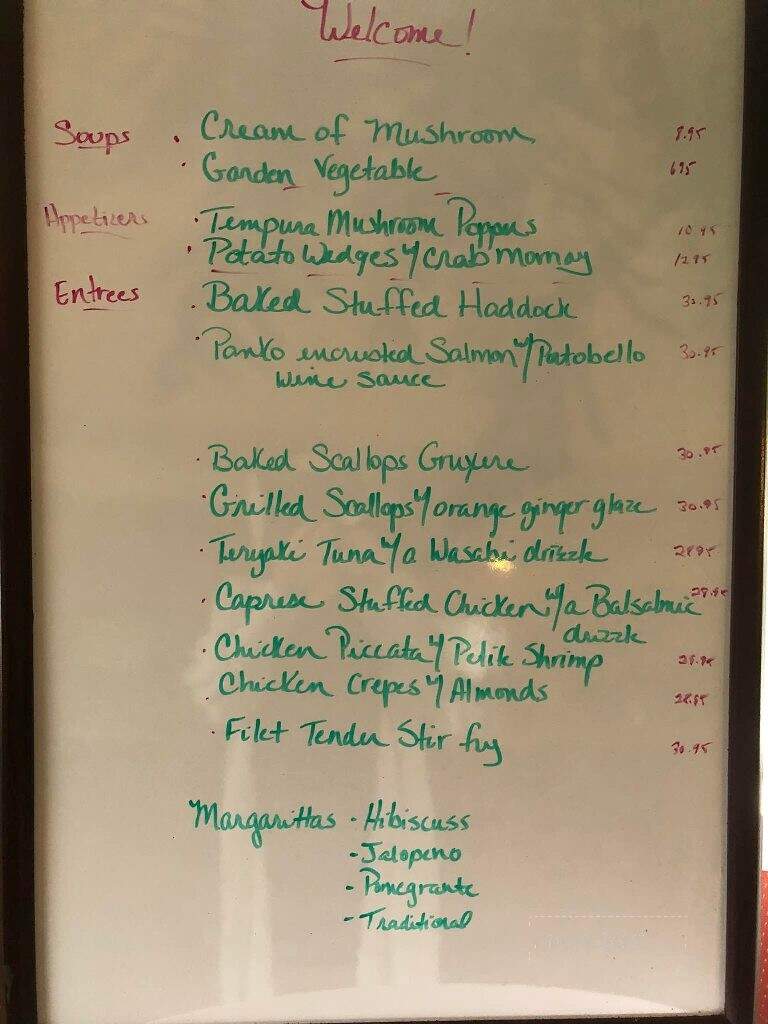 Welcome!
Soups . Cream of Mushroom 8.95
. Garden Vegetable 695
Appetizers . Tempura Mushroom Poppers 10.95
. Potato Wedges w/ Crab Mornay 1295
Entrees . Baked Stuffed Haddock 30.95
. Panko encrusted Salmon w/ Portobello 30.95
wine sauce
. Baked Scallops Gruyere 30.95
. Grilled Scallops w/ orange ginger glaze 30.95
. Teryaki Tuna w/ a Wasabi drizzle 28.95
. Caprese Stuffed Chicken w/ a Balsalmic 28.95
drizzle
. Chicken Piccata w/ Petite Shrimp 28.95
. Chicken Crepes w/ Almonds 28.95
. Filet Tender Stir fry 30.95
Margarittas - Hibiscuss
- Jalopeno
- Pomegrante
- Traditional